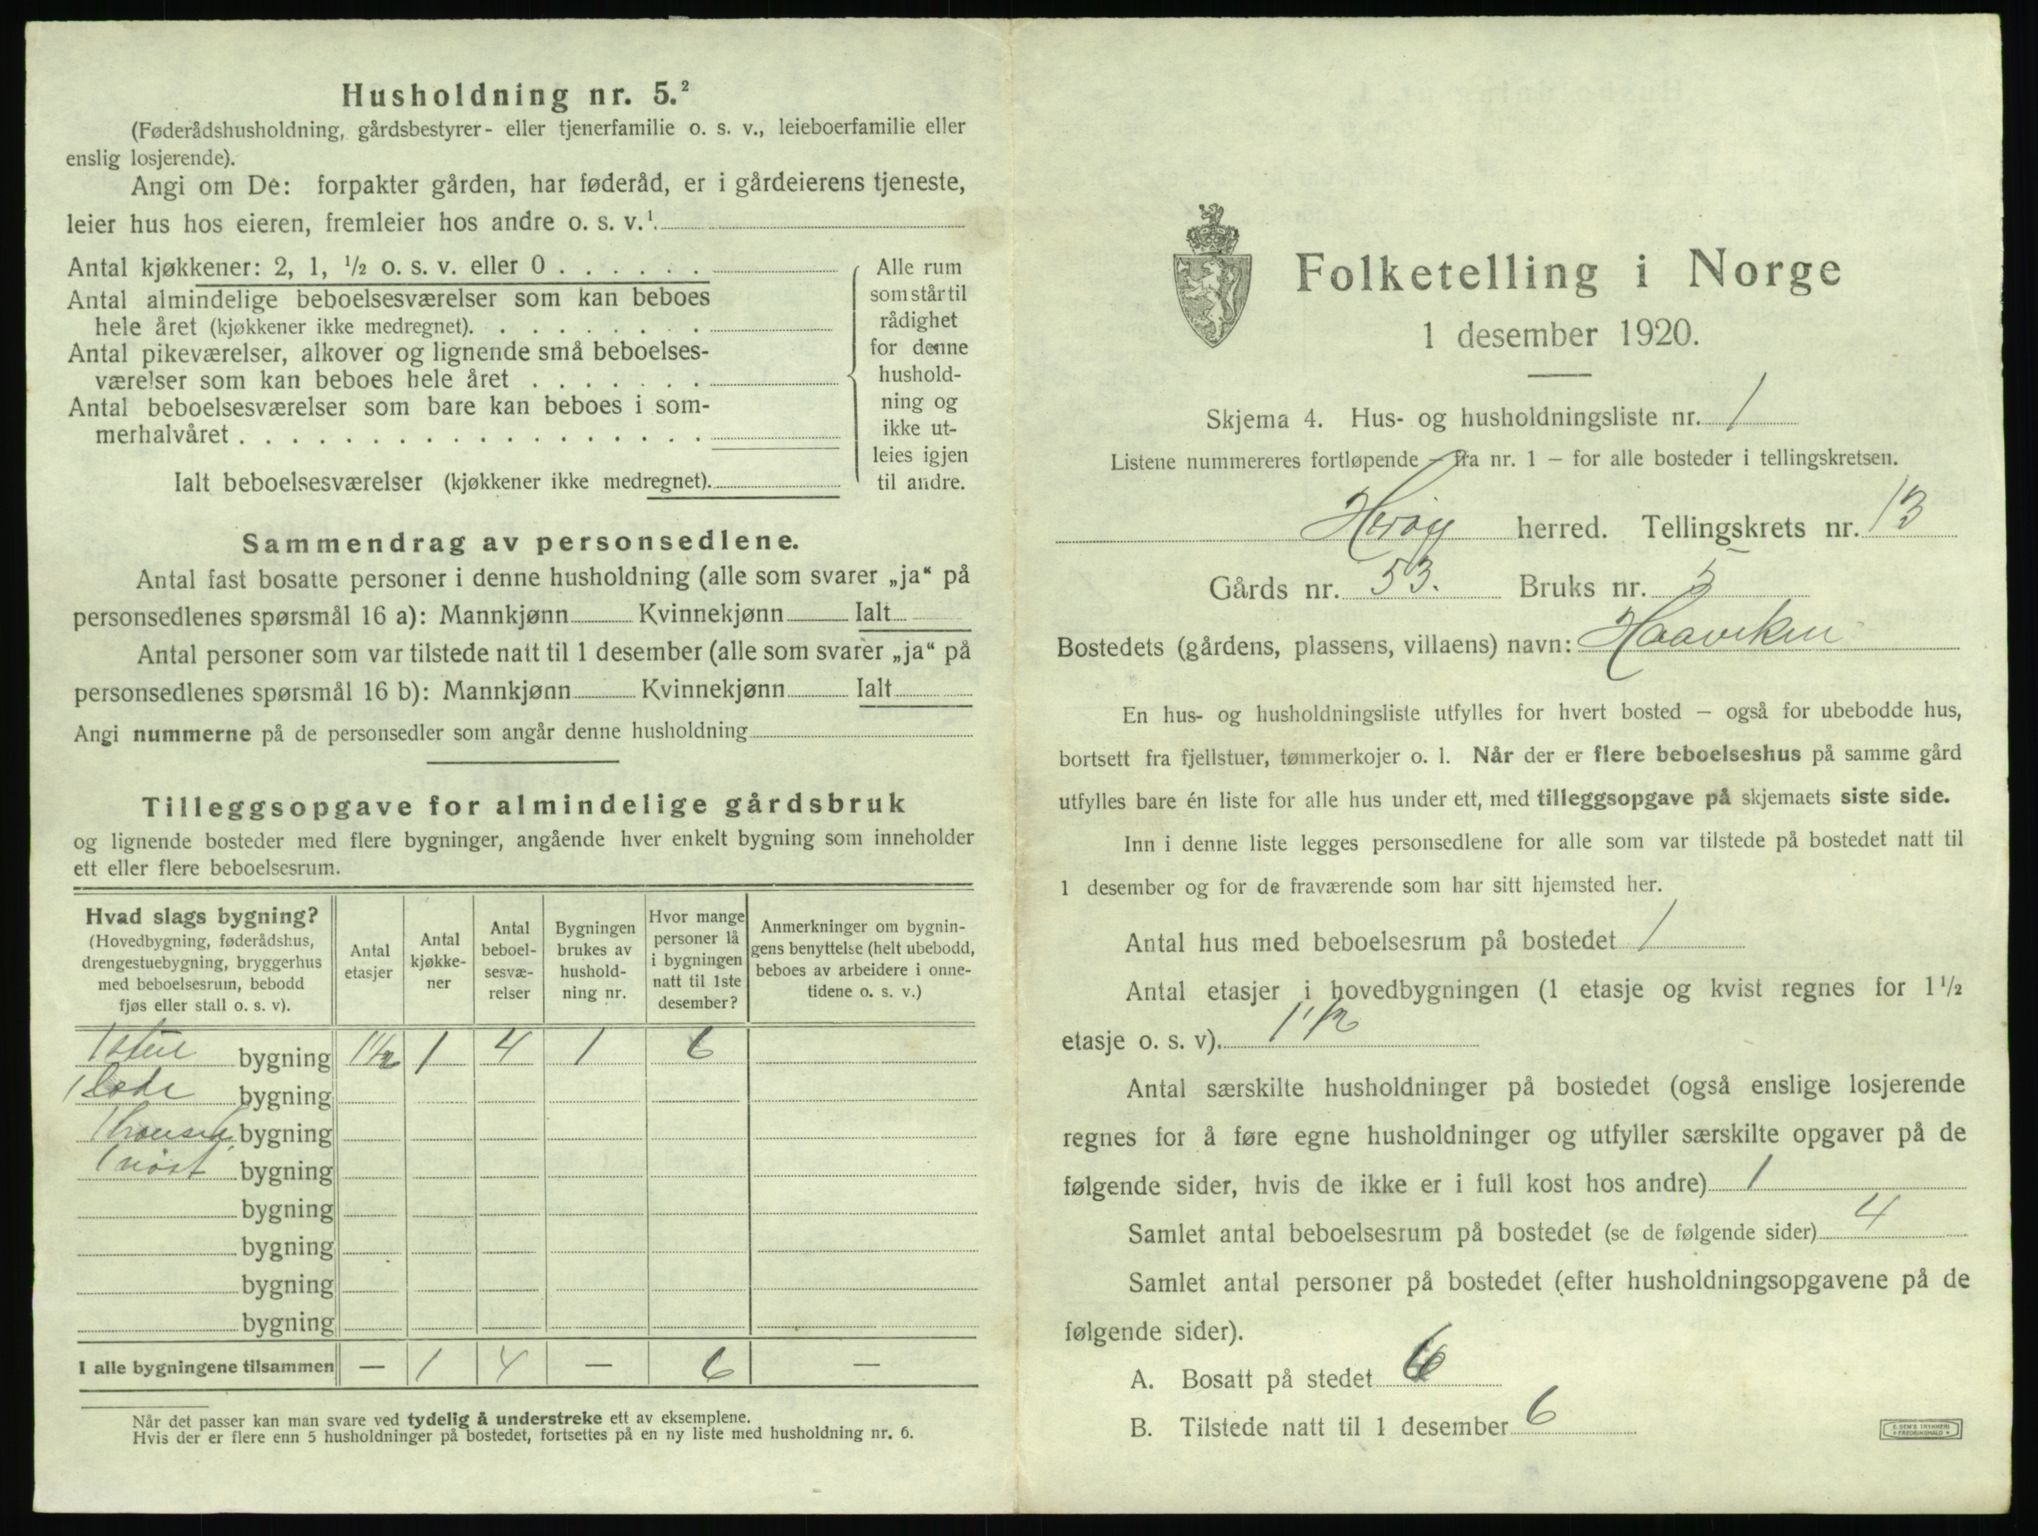 Husholdning nr. 5.²
(Føderådshusholdning, gårdsbestyrer- eller tjenerfamilie o. s. v., leieboerfamilie eller
enslig losjerende).
Angi om De: forpakter gården, har føderåd, er i gårdeierens tjeneste,
leier hus hos eieren, fremleier hos andre o. s. v.¹
Antal kjøkkener: 2, 1, ½ o. s. v. eller 0 . . . . . .
Antal almindelige beboelsesværelser som kan beboes
hele året (kjøkkener ikke medregnet). . . . . . . . .
Antal pikeværelser, alkover og lignende små beboelses-
værelser som kan beboes hele året . . . . . . .
Antal beboelsesværelser som bare kan beboes i som-
merhalvåret . . . . . . . . . . . . . . . . . .
Ialt beboelsesværelser (kjøkkener ikke medregnet).
Alle rum
som står til
rådighet
for denne
hushold-
ning og
ikke ut-
leies igjen
til andre.
Sammendrag av personsedlene.
Antal fast bosatte personer i denne husholdning (alle som svarer „ja“ på
personsedlenes spørsmål 16 a): Mannkjønn Kvinnekjønn Ialt
Antal personer som var tilstede natt til 1 desember (alle som svarer „ja“ på
personsedlenes spørsmål 16 b): Mannkjønn Kvinnekjønn Ialt
Angi nummerne på de personsedler som angår denne husholdning
Tilleggsopgave for almindelige gårdsbruk
og lignende bosteder med flere bygninger, angående hver enkelt bygning som inneholder
ett eller flere beboelsesrum.
Hvad slags bygning?
(Hovedbygning, føderådshus,
drengestuebygning, bryggerhus
med beboelsesrum, bebodd
fjøs eller stall o. s. v).
Antal
etasjer
Antal
kjøkke-
ner
Antal
beboel-
sesvæ-
relser
Bygningen
brukes av
hushold-
ning nr.
Hvor mange
personer lå
i bygningen
natt til 1ste
desember?
Anmerkninger om bygnin-
gens benyttelse (helt ubebodd,
beboes av arbeidere i onne-
tidene o. s. v.)
1 bygning 1½ 1 4 1 6
1 bygning
1 bygning
1 nøst bygning
bygning
bygning
bygning
bygning
I alle bygningene tilsammen — 1 4 — 6 —
Når det passer kan man svare ved tydelig å understreke ett av eksemplene.
Hvis der er flere enn 5 husholdninger på bostedet, fortsettes på en ny liste med husholdning nr. 6.
Folketelling i Norge
1 desember 1920.
Skjema 4. Hus- og husholdningsliste nr. 1
Listene nummereres fortløpende – fra nr. 1 – for alle bosteder i tellingskretsen.
Herøy herred. Tellingskrets nr. 13
Gårds nr. 53. Bruks nr. 5
Bostedets (gårdens, plassens, villaens) navn: Haaviken
En hus- og husholdningsliste utfylles for hvert bosted – også for ubebodde hus,
bortsett fra fjellstuer, tømmerkojer o. l. Når der er flere beboelseshus på samme gård
utfylles bare én liste for alle hus under ett, med tilleggsopgave på skjemaets siste side.
Inn i denne liste legges personsedlene for alle som var tilstede på bostedet natt til
1 desember og for de fraværende som har sitt hjemsted her.
Antal hus med beboelsesrum på bostedet 1
Antal etasjer i hovedbygningen (1 etasje og kvist regnes for 1½
etasje o. s. v). 1½
Antal særskilte husholdninger på bostedet (også enslige losjerende
regnes for å føre egne husholdninger og utfyller særskilte opgaver på de
følgende sider, hvis de ikke er i full kost hos andre) 1
Samlet antal beboelsesrum på bostedet (se de følgende sider) 4
Samlet antal personer på bostedet (efter husholdningsopgavene på de
følgende sider).
A. Bosatt på stedet 6
B. Tilstede natt til 1 desember 6